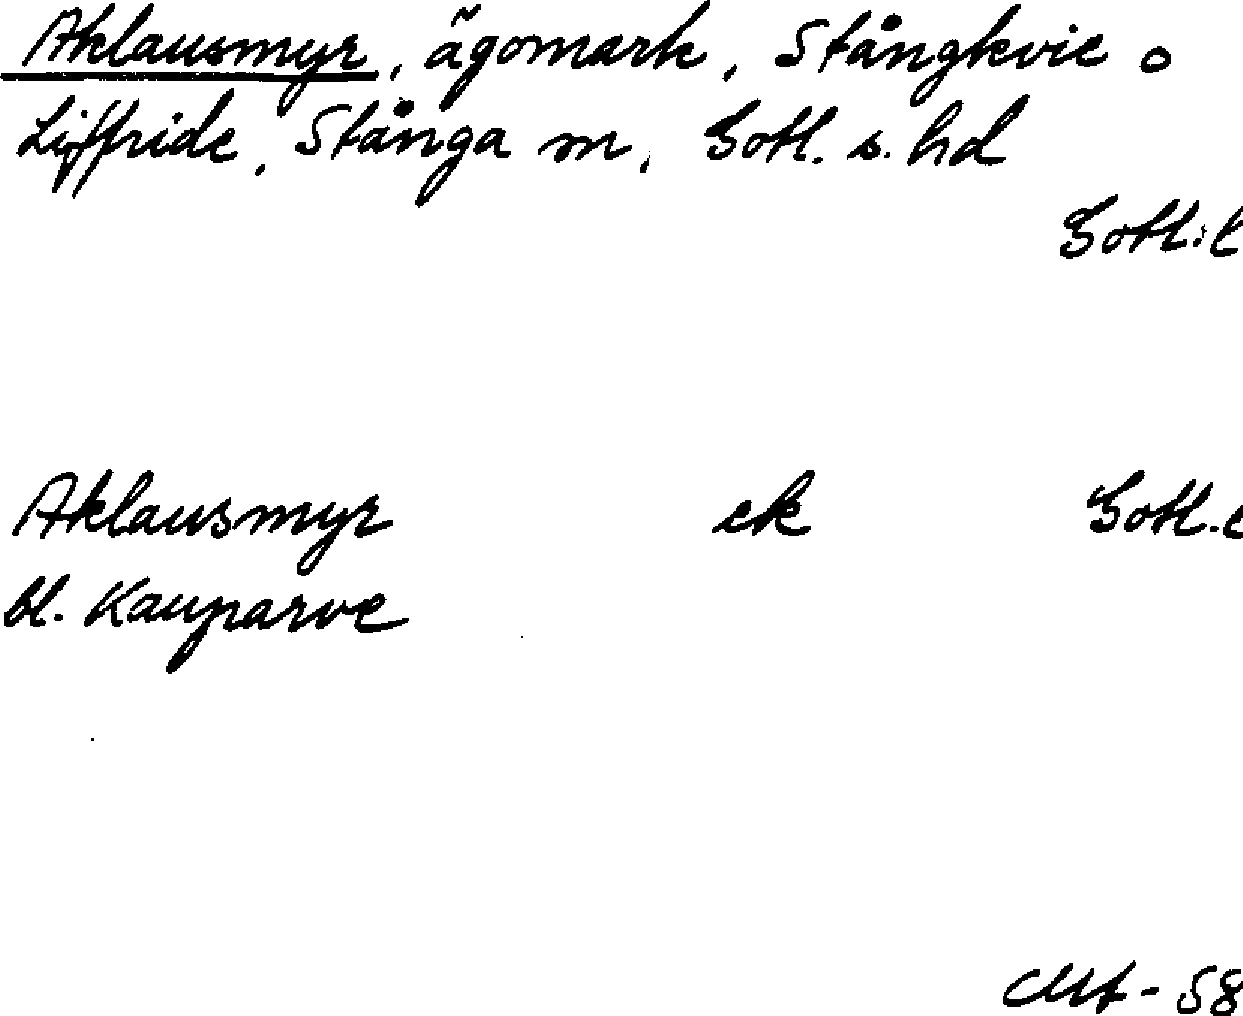 Aklausmyr, ägomark, Stångkvie o
Liffride, Stånga sn, Gotl. s. hd
Gotl. l
Aklausmyr ek Gotl. l
bl. Kauparve